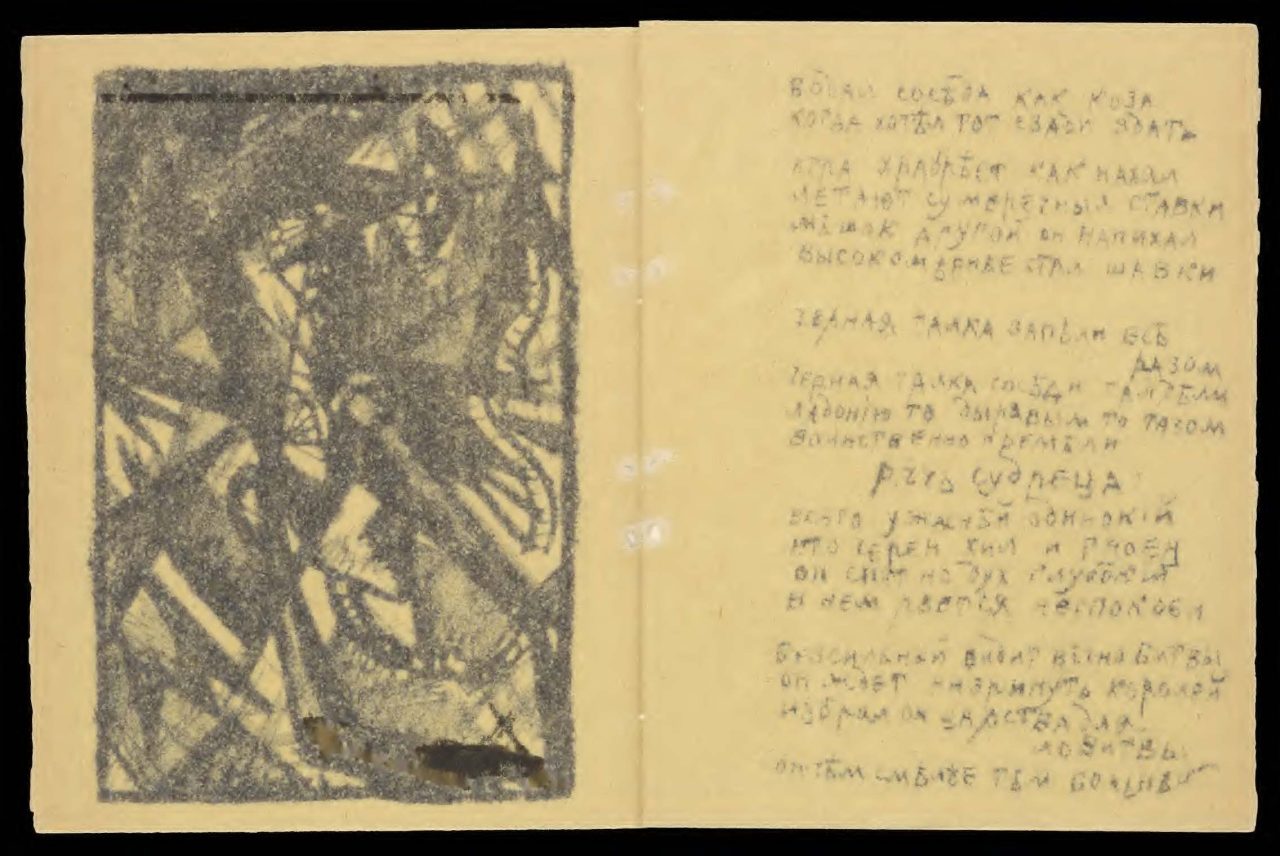 БОДАЛ СОСѢДА КАК КОЗА
КОГДА ХОТѢЛ ТОТ СЗАДИ
ИГРА ХРАБРѢЕТ КАК НАХАЛ
МЕТАЮТ СУМЕРЕЧНЫЯ СТАВКИ
МѢШОК ДРУГОЙ ОН НАПИХАЛ
ВЫСОКОМѢРНѢЕ СТАЛ ШАВКИ
ЧЕРНАЯ ГАЛКА ЗАПѢЛИ ВСѢ
РАЗОМ
ЧЕРНАЯ ГАЛКА СОСѢДИ ГАЛДЕЛИ
ЛАДОНІЮ ТО ДЫРЯВЫМ ТО ТАЗОМ
ВОИНСТВЕННО ГРЕМѢЛИ
РѢЧЬ
ВСЕГО УЖАСНѢЙ ОДИНОКІЙ
КТО ЧЕРЕН ХИЛ И ГНОЕН
ОН СПИТ НО ДУХ ГЛУБОКІЙ
В НЕМ РВЕТСЯ НЕСПОКОЕН
БЕЗСИЛЬНЫЙ ВИДИТ ВѢЧНО БИТВЫ
ОН ЖДЕТ НИЗРИНУТЬ КОРОЛЕЙ
ИЗБРАЛ ОН ЦАРСТВА ДЛЯ
ЛОВИТВЫ
ОН ТѢМ СМѢЛѢЕ ТѢМ БОЛЬНѢЙ